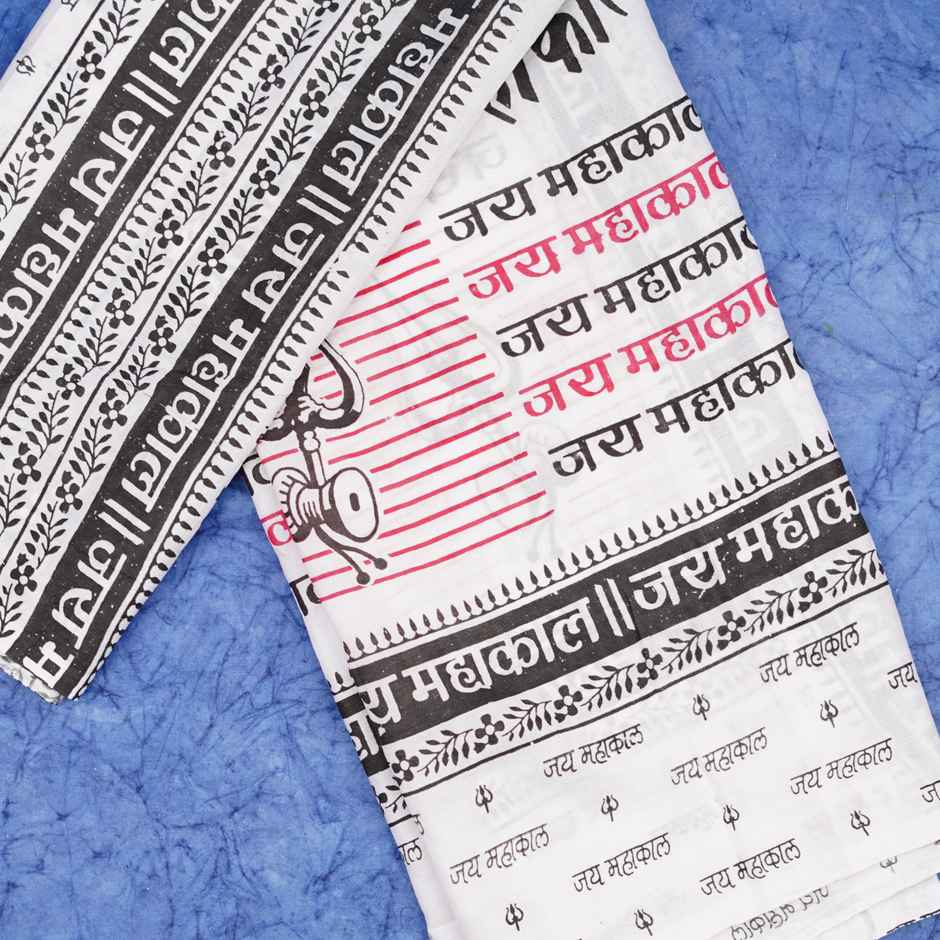 जय महाकाल || जय महाकाल
जय महाकाल || जय महाकाल
जय महाकाल
जय महाकाल
जय महाकाल
जय महाकाल
जय महाकाल
जय महाकाल || जय महाकाल
जय महाकाल
जय
जय महाकाल
जय महाकाल
जय महाकाल
जय महाकाल
जय महाकाल
जय महाकाल